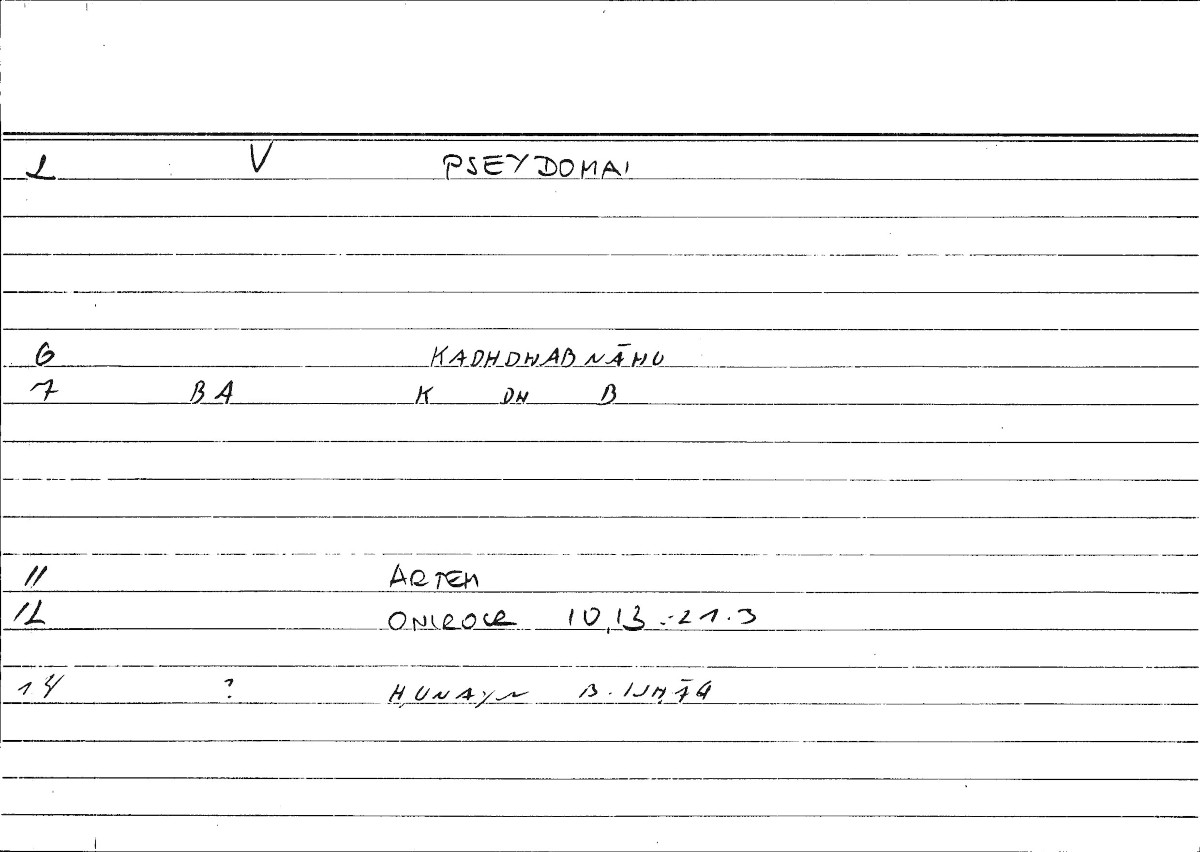 2 V PSEYDOMAI
6 KADHDHABNĀHU
7 BA K DH B
11 ARTEM
12 ONIROCR 10,13.-21.3
14 ? ḤUNAYN B. ISḤĀQ